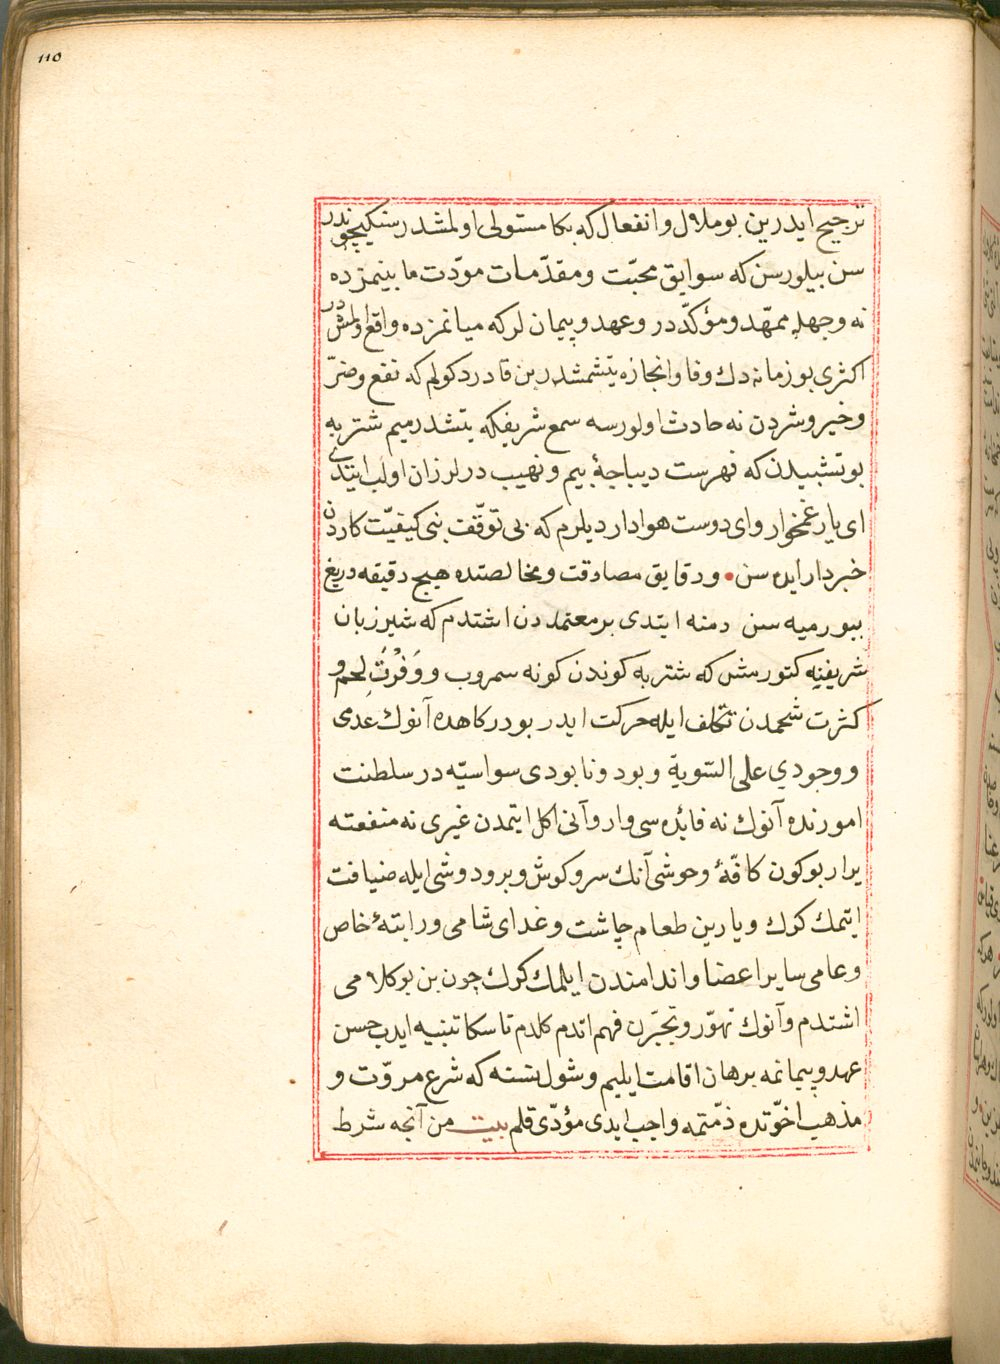 110
ترجیح ایدرین بو ملال و انفعال که بکا مستولی اولمشدر سنکیچوندر
سن بیلورسن که سوابق محبّت و مقدّمات مودّت مابینمزده
نه وجهله ممهّد و مؤکّددر و عهد و پیمان لرکه میانمزده واقع اولمشدر
اکثری بو زمانه دك وفا و انجازه یتشمشدر بن قادر دکولم که نفع و ضرّ
و خیر و شردن نه حادث اولورسه سمع شریفکه یتشدرمیم شتربه
بو تشبیبدن که فهرست دیباجهٔ بیم و نهیب در لرزان اولب ایتدی
ای یار غمخوار و ای دوست هوادار دیلرم که بی توقّف بنی کیفیّت کاردن
خبردار ایده سن • و دقایق مصادقت و مخالصتده هیچ دقیقه دریغ
بیورمیه سن دمنه ایتدی بر معتمددن اشتدم که شیر زبان
شریفنیه کتورمش که شتربه کوندن کونه سمروب و وَفْرَتِ لحم و
کثرت شحمدن تکلف ایله حرکت ایدر بو درکاهده آنوك عدمی
و وجودی علی السّویة و بود و نابودی سواسیّه در سلطنت
امورنده آنوك نه فائده سی وار و آنی اکل ایتمدن غیری نه منفعته
یرار بو کون کافّهٔ وحوشی آنك سر و کوش و برو دوشی ایله ضیافت
ایتمك کرك و یارین طعام چاشت و غدای شامی و راتبهٔ خاص
و عامی سایر اعضا و اندامندن ایلمك کرك چون بن بو کلامی
اشتدم و آنوك تهوّر و تجبّرن فهم اتدم کلدم تا سکا تنبیه ایدب حسن
عهد و پیمانمه برهان اقامت ایلیم و شول نسنه که شرع مروّت و
مذهب اخوّتده ذمّتمه واجب ایدی مؤدّی قلم بیت من آنچه شرط